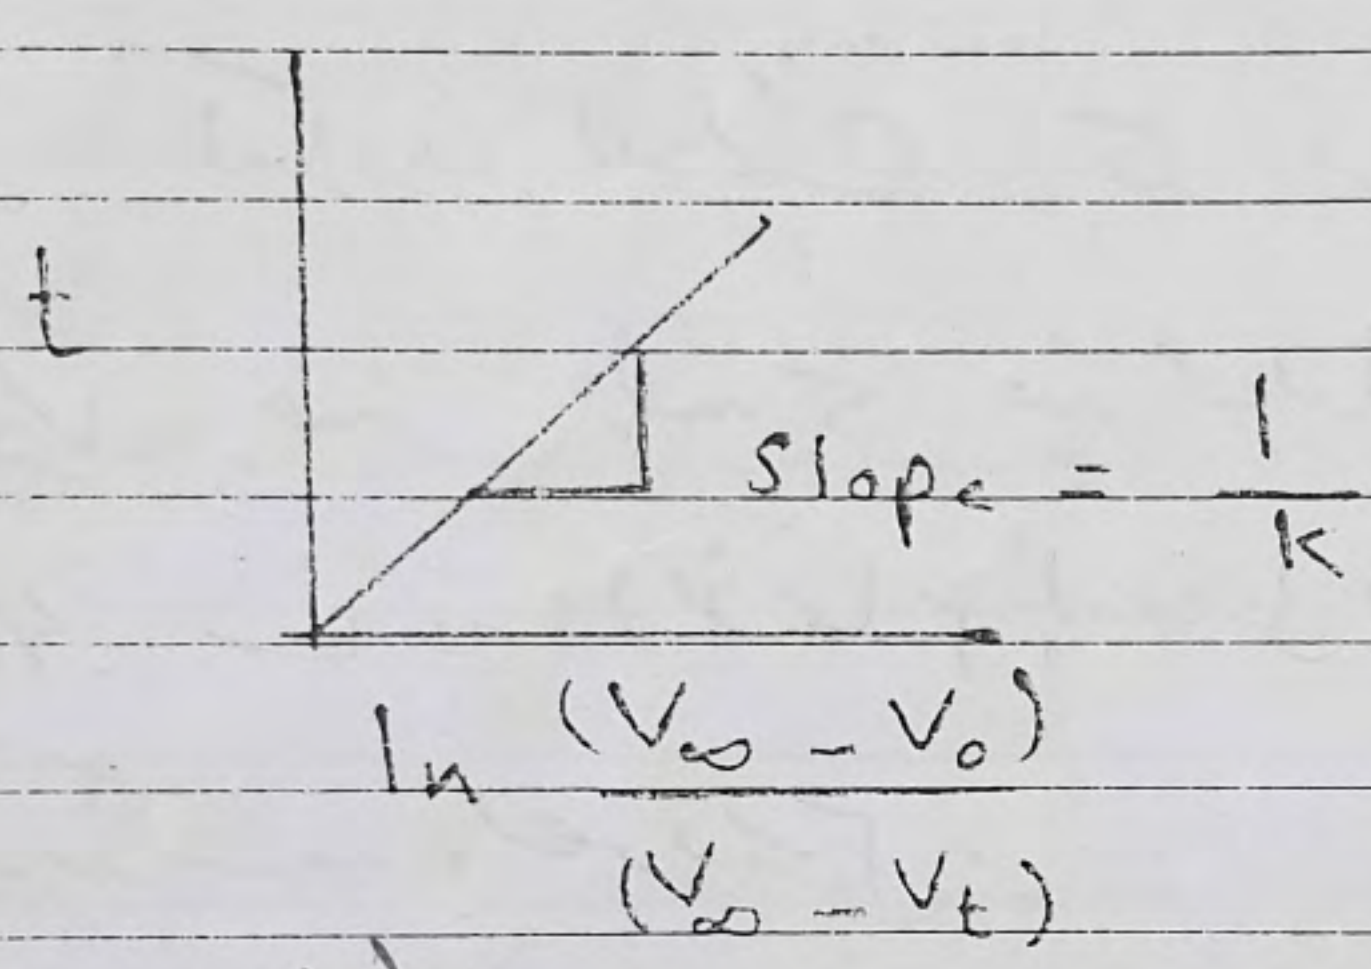 t
Slope = 1/k
ln (V∞ - V₀)/(V∞ - Vt)